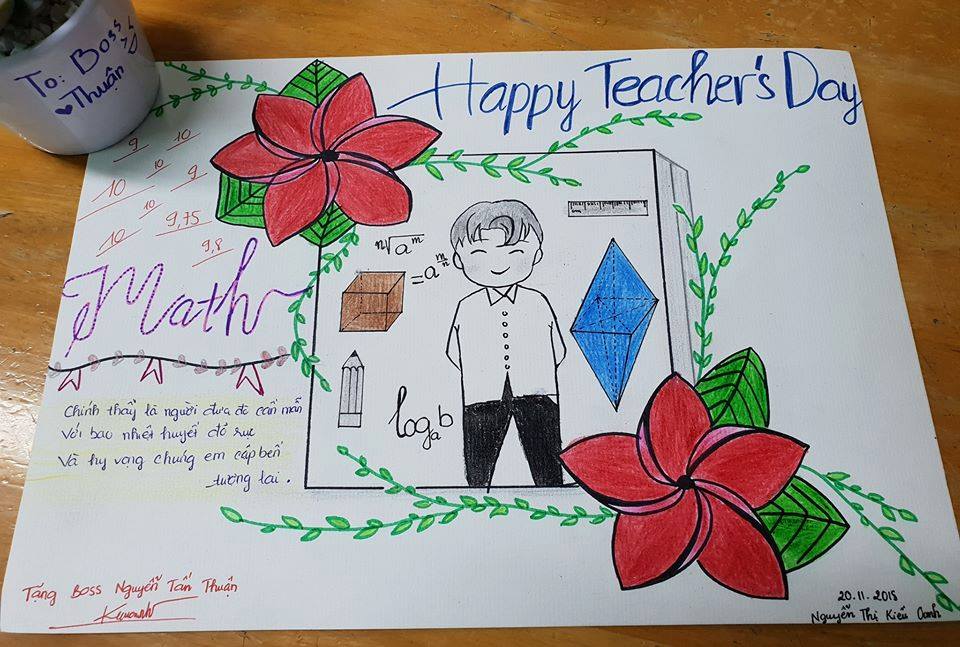 To: Boss
Thuận
Happy Teacher's Day
9
10
10
10
9
10
9,75
10
9,8
Math
ⁿ√aᵐ = a^(m/n)
logₐb
Chính thầy là người đưa đò cần mẫn
Với bao nhiệt huyết đỏ rực
Và hy vọng chúng em cập bến
tương lai.
Tặng Boss Nguyễn Tấn Thuận
20.11.2018
Nguyễn Thị Kiều Oanh